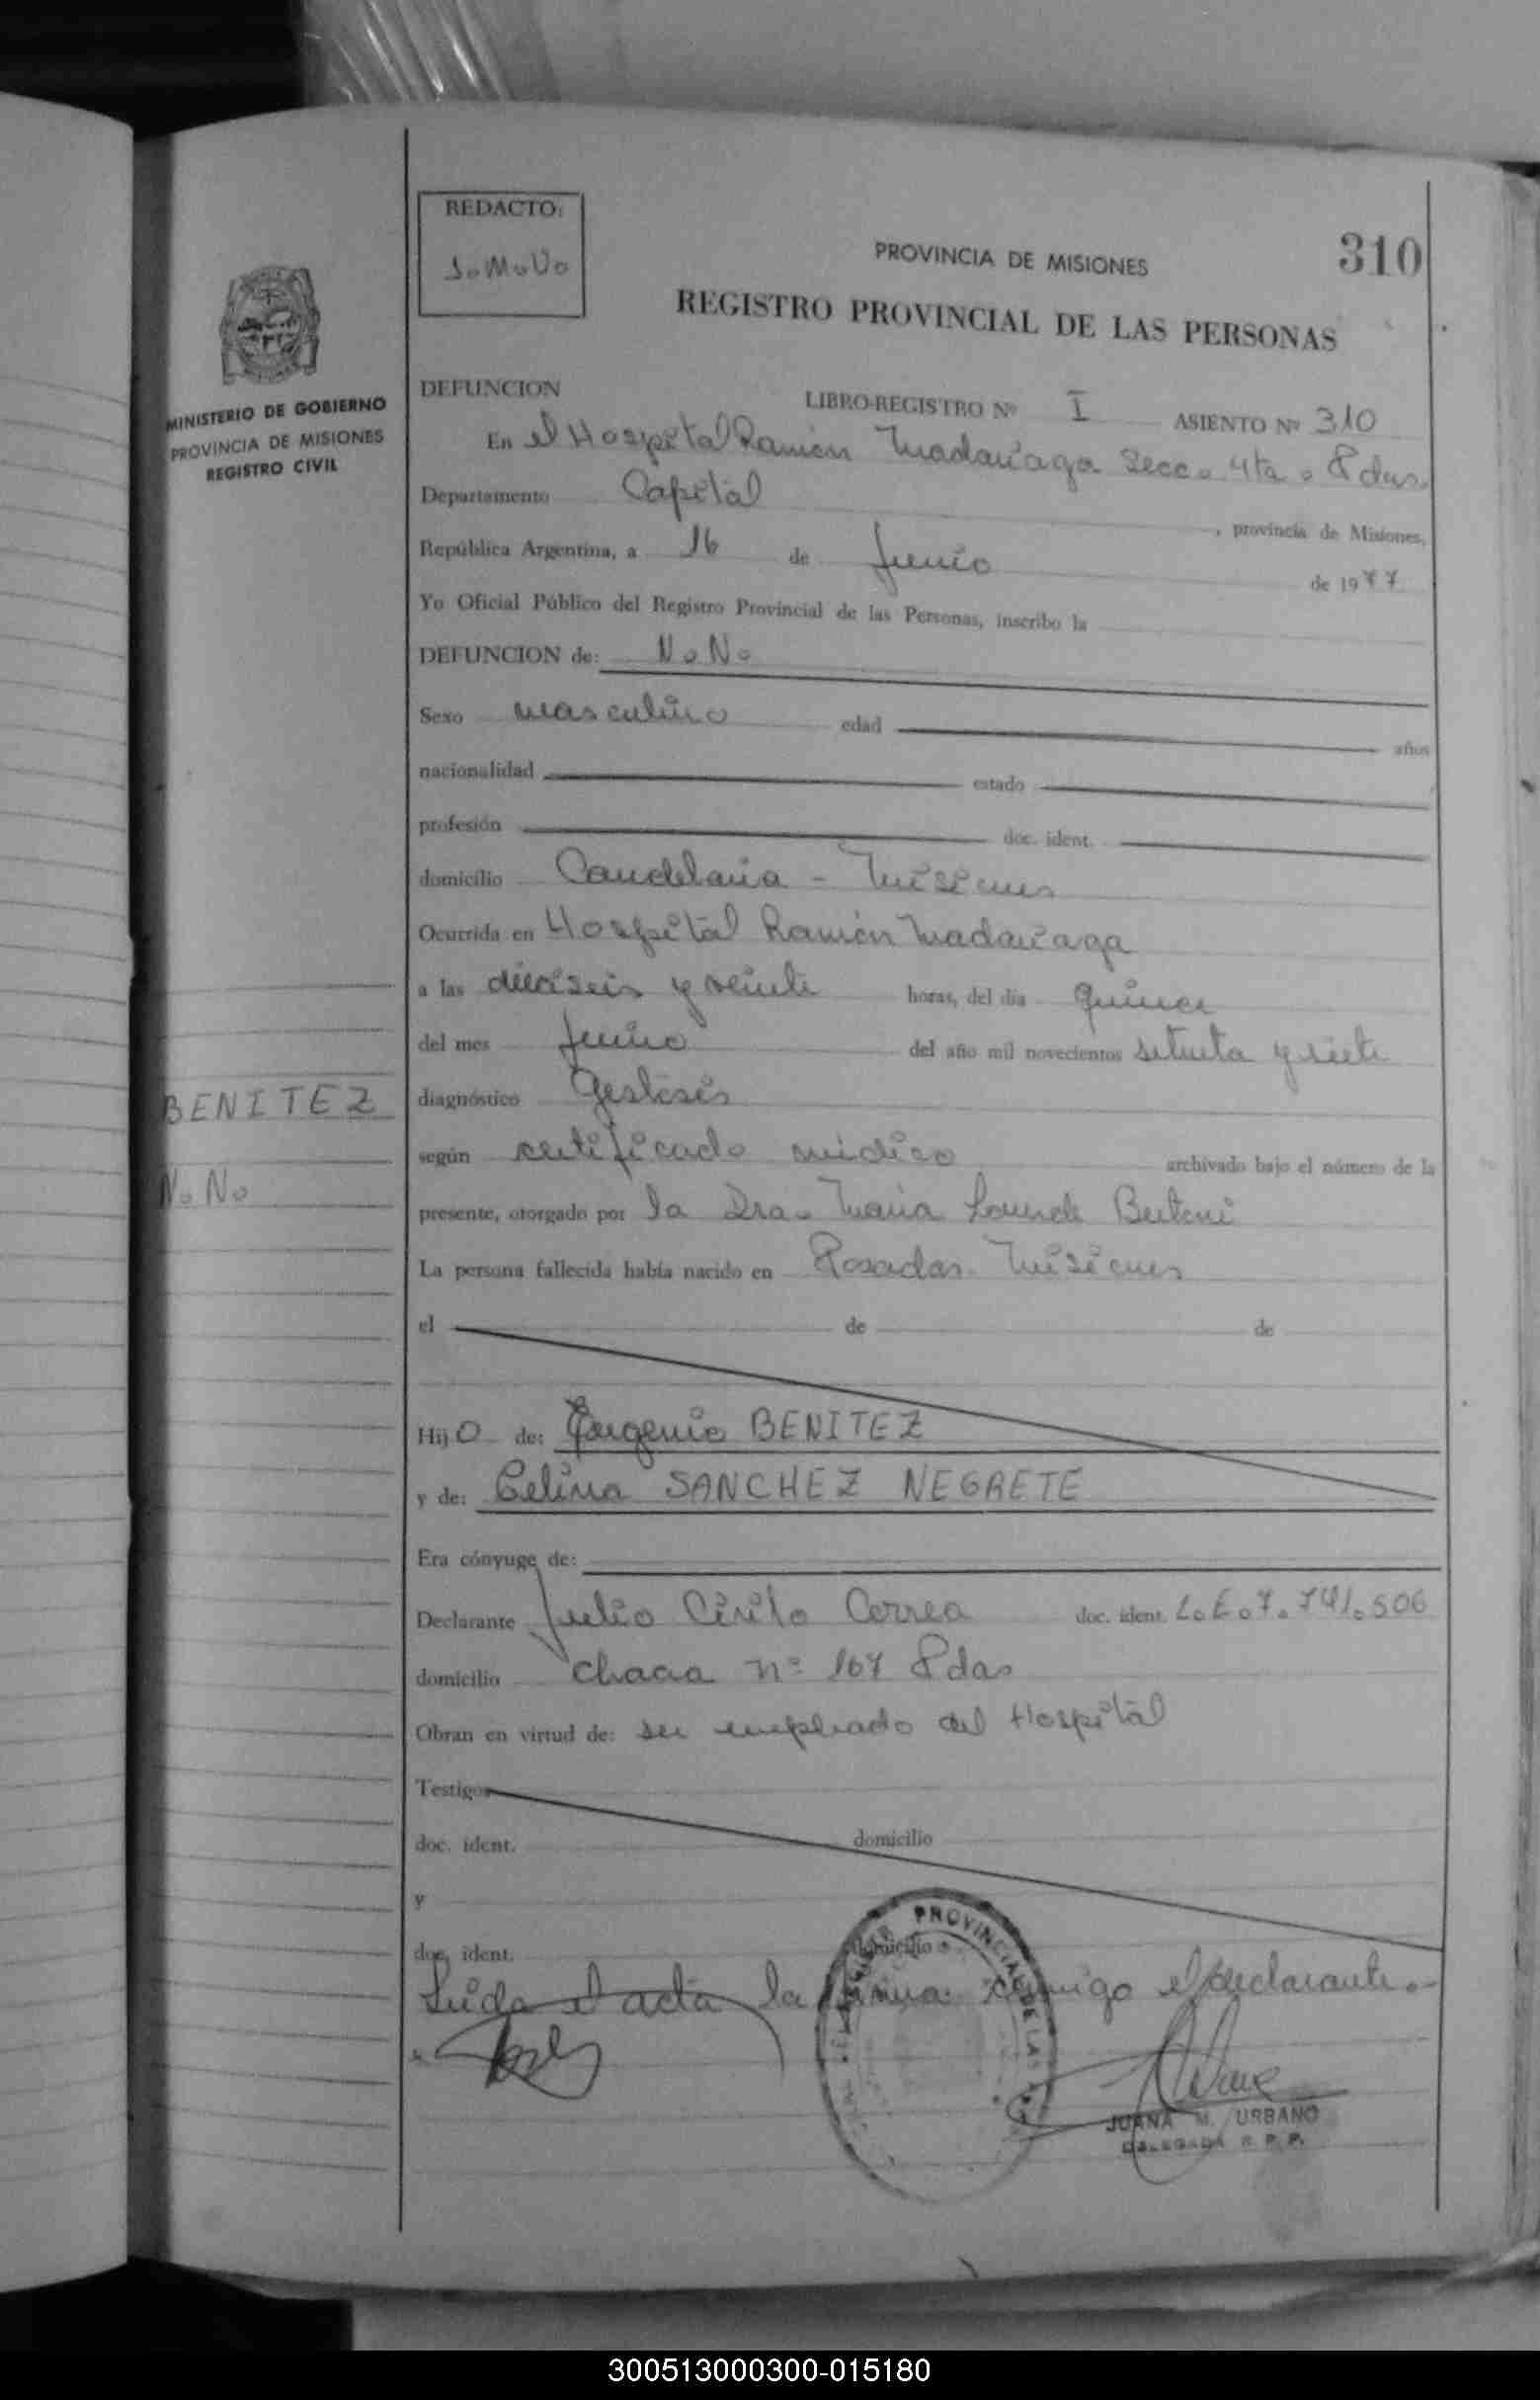 REDACTO:
J.M.U.
PROVINCIA DE MISIONES
310
REGISTRO PROVINCIAL DE LAS PERSONAS
MINISTERIO DE GOBIERNO
PROVINCIA DE MISIONES
REGISTRO CIVIL
DEFUNCION LIBRO-REGISTRO Nº I ASIENTO Nº 310
En el Hospital Ramón Madariaga Secc. 4ta. Pdas.
Departamento Capital , provincia de Misiones,
República Argentina, a 16 de Junio de 1977
Yo Oficial Público del Registro Provincial de las Personas, inscribo la
DEFUNCION de: N.N.
Sexo masculino edad años
nacionalidad estado
profesión doc. ident.
domicilio Candelaria - Misiones
Ocurrida en Hospital Ramón Madariaga
a las dieciseis y veinte horas, del día quince
del mes Junio del año mil novecientos setenta y siete
BENITEZ
N.N.
diagnóstico Gestosis
según certificado médico archivado bajo el número de la
presente, otorgado por la Dra. Maria Lourde Bertoni
La persona fallecida había nacido en Posadas. Misiones
el de de
Hijo de: Eugenio BENITEZ
y de: Celina SANCHEZ NEGRETE
Era cónyuge de:
Declarante Julio Cirilo Correa doc. ident. L.E.7.741.506
domicilio Chacra nº 167 Pdas
Obran en virtud de: ser empleado del Hospital
Testigos
doc. ident. domicilio
y
doc. ident. domicilio
Leida el acta la firma conmigo el declarante.-
PROVINCIAL DE LAS
JUANA M. URBANO
DELEGADA R. P. P.
300513000300-015180